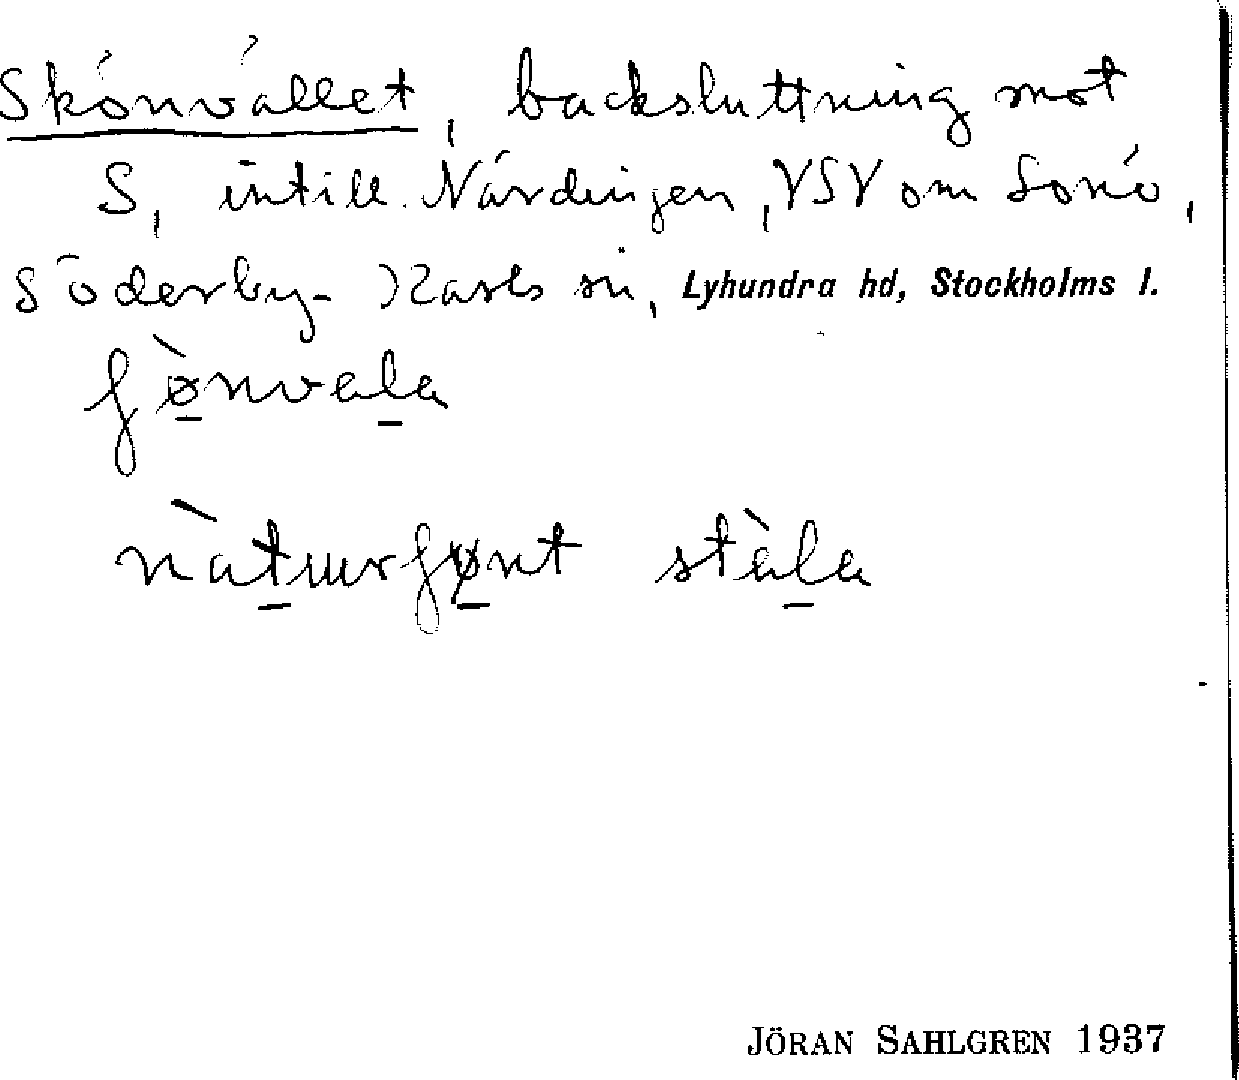 Skönvallet, backsluttning mot
S, intill Närdingen, VSV om Sonö,
Söderby-Karls sn, Lyhundra hd, Stockholms l.
ʃø̀nvala
nàturʃønt stàla
JÖRAN SAHLGREN 1937